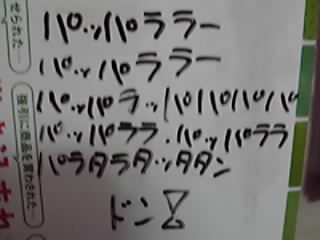 パッパララー
パッパララー
パッパラッパパパパ
パッパララ.パッパララ
パラタラタッタタン
ドン
せられた…
強引に商品を買わされた…